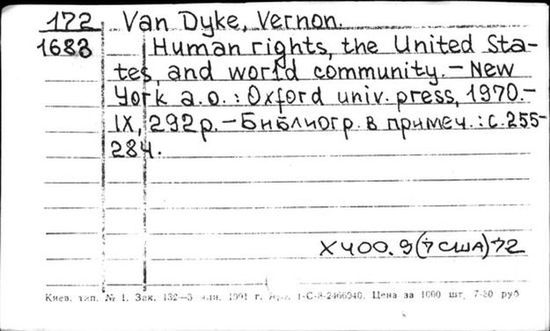 172 Van Dyke, Vernon.
1683 Human rights, the United Sta-
tes, and world community. – New
York a.o. : Oxford univ. press, 1970.–
IX, 292 p. – Библиогр. в примеч.: с. 255-
284.
X400.9(7США)72
Киев. тип. № 1. Зак. 132—3 1991 г. 1-С-8-2466940. Цена за 1000 шт. 7-80 руб